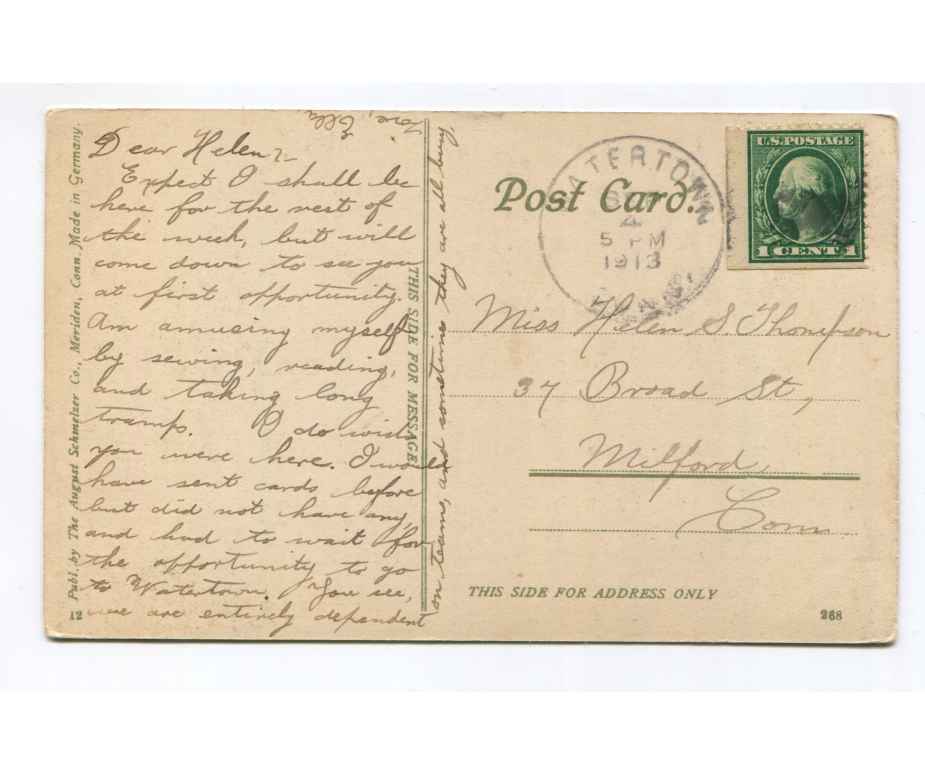 Dear Helen :-
Expect I shall be
here for the rest of
the week, but will
come down to see you
at first opportunity.
Am amusing myself
by sewing, reading,
and taking long
tramps. I do wish
you were here. I would
have sent cards before
but did not have any,
and had to wait for
the opportunity to go
to Watertown. You see,
we are entirely dependent
on teams, and sometimes they are all busy
Love, Ella
Publ. by The August Schmelzer Co., Meriden, Conn. Made in Germany.
12
THIS SIDE FOR MESSAGE
Post Card.
WATERTOWN
4
5 PM
1913
U.S. POSTAGE
1 CENT 1
Miss Helen S. Thompson
37 Broad St,
Milford,
Conn
THIS SIDE FOR ADDRESS ONLY
268